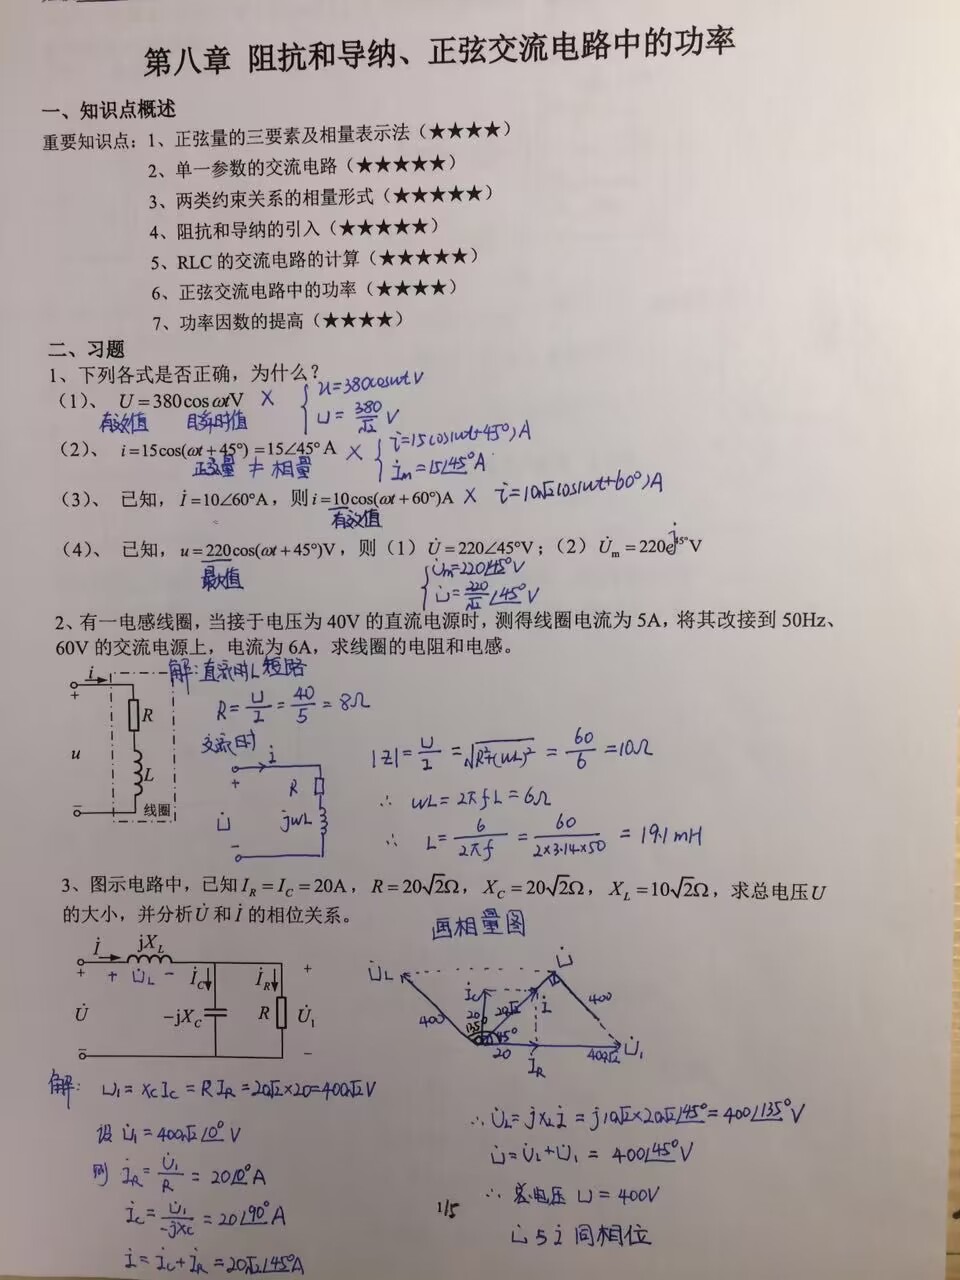 第八章 阻抗和导纳、正弦交流电路中的功率
一、知识点概述
重要知识点：1、正弦量的三要素及相量表示法（★★★★）
2、单一参数的交流电路（★★★★★）
3、两类约束关系的相量形式（★★★★★）
4、阻抗和导纳的引入（★★★★★）
5、RLC 的交流电路的计算（★★★★★）
6、正弦交流电路中的功率（★★★★）
7、功率因数的提高（★★★★）
二、习题
1、下列各式是否正确，为什么？
（1）、 U = 380cos ωtV × { u=380cosωt V
U = 380/√2 V
有效值 瞬时值
（2）、 i = 15cos(ωt + 45°) = 15∠45° A × { i=15cos(ωt+45°)A
İm=15∠45°A
正弦量 ≠ 相量
（3）、 已知，İ = 10∠60°A，则 i = 10cos(ωt + 60°)A × i=10√2cos(ωt+60°)A
有效值
（4）、 已知，u = 220cos(ωt + 45°)V，则（1）U̇ = 220∠45°V；（2）U̇m = 220e^j45°V
最大值 { U̇m=220∠45°V
U̇=220/√2∠45°V
2、有一电感线圈，当接于电压为 40V 的直流电源时，测得线圈电流为 5A，将其改接到 50Hz、
60V 的交流电源上，电流为 6A，求线圈的电阻和电感。
解：直流时L短路
R=U/I=40/5=8Ω
交流时
i + R u L − 线圈
İ + R U̇ jωL −
|Z|=U/I=√(R²+(ωL)²)=60/6=10Ω
∴ ωL=2πfL=6Ω
∴ L=6/(2πf)=60/(2×3.14×50)=19.1mH
3、图示电路中，已知 I_R = I_C = 20A，R = 20√2Ω，X_C = 20√2Ω，X_L = 10√2Ω，求总电压U
的大小，并分析U̇ 和 İ 的相位关系。
画相量图
İ jX_L + U̇_L − İ_C İ_R + U̇ −jX_C R U̇₁ −
U̇_L U̇ İ_C İ 20 20√2 400 400 135° 45° 20 İ_R 400√2 U̇₁
解： U₁=X_C I_C=R I_R=20√2×20=400√2V
设 U̇₁=400√2∠0°V
则 İ_R=U̇₁/R=20∠0°A
İ_C=U̇₁/−jX_C=20∠90°A
İ=İ_C+İ_R=20√2∠45°A
∴ U̇_L=jX_L İ=j10√2×20√2∠45°=400∠135°V
U̇=U̇_L+U̇₁=400∠45°V
∴ 总电压 U=400V
U̇与İ 同相位
1/5